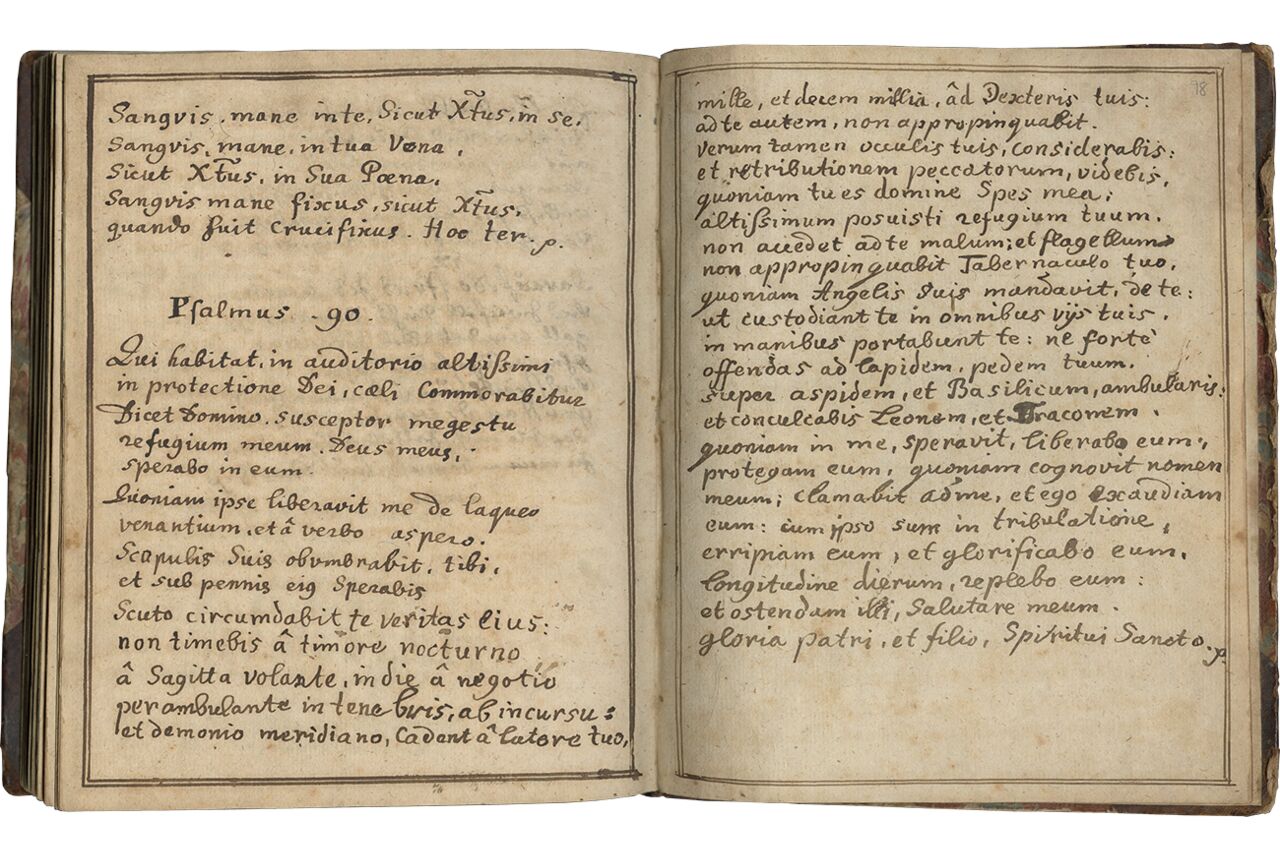 Sangvis, mane in te, Sicut Xt̃us, in se,
Sangvis, mane, in tua Vena,
Sicut Xt̃us, in Sua Pœna,
Sangvis mane fixus, sicut Xt̃us,
quando fuit Crucifixus. Hoc ter. p.
Psalmus. 90.
Qui habitat, in auditorio altissimi
in protectione Dei, cæli Commorabitur
Dicet Domino, susceptor megestu
refugium meum. Deus meus,
sperabo in eum.
Quoniam ipse liberavit me de laqueo
venantium, et â verbo aspero.
Scapulis Suis obvmbrabit, tibi,
et sub pennis eig Sperabis
Scuto circumdabit te veritas eius:
non timebis â timore nocturno
â Sagitta volante, in die â negotio
perambulante in tenebris, ab incursu:
et demonio meridiano, Cadent â latere tuo,
98
mille, et decem millia, âd Dexteris tuis:
ad te autem, non appropinquabit.
verum tamen occulis tuis, considerabis:
et retributionem peccatorum, videbis,
quoniam tu es domine Spes mea;
altissimum posuisti refugium tuum.
non accedet ad te malum; et flagellum
non appropinquabit Tabernaculo tuo,
quoniam Angelis Suis mandavit, de te:
ut custodiant te in omnibus vijs tuis.
in manibus portabunt te: ne forte
offendas ad lapidem, pedem tuum.
super aspidem, et Basilicum, ambularis:
et conculcabis Leonem, et Draconem.
quoniam in me, speravit, liberabo eum:,
protegam eum, quoniam cognovit nomen
meum; clamabit ad me, et ego exaudiam
eum: cum ipso sum in tribulatione,
erripiam eum, et glorificabo eum,
longitudine dierum, replebo eum:
et ostendam illi, Salutare meum.
gloria patri, et filio, Spiritui Sancto. p.